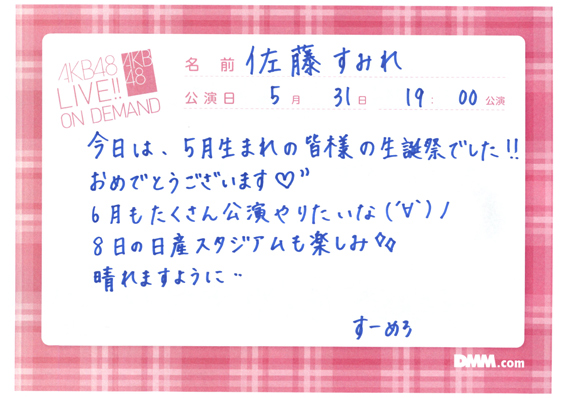 AKB48
LIVE!!
ON DEMAND
AKB
48
名前 佐藤すみれ
公演日 5月 31日 19:00公演
今日は、5月生まれの皆様の生誕祭でした!!
おめでとうございます♡"
6月もたくさん公演やりたいな(´∀`)ノ
8日の日産スタジアムも楽しみ◇◇
晴れますように¨
すーめろ
DMM.com